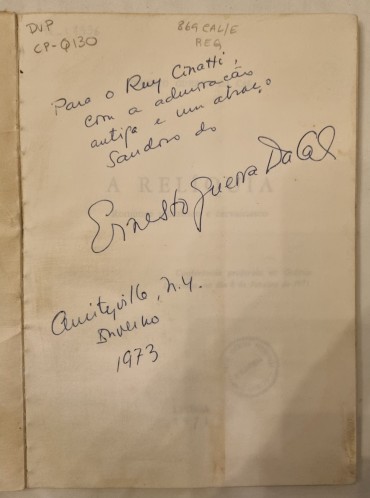 DUP
CP-Q130
869 CAL/E
REG
Para o Ruy Cinatti,
com a admiração
antiga e um abraço
Saudoso do
A RELIQUIA
Ernesto Guerra Da Cal
Amityville, N.Y.
Inverno
1973